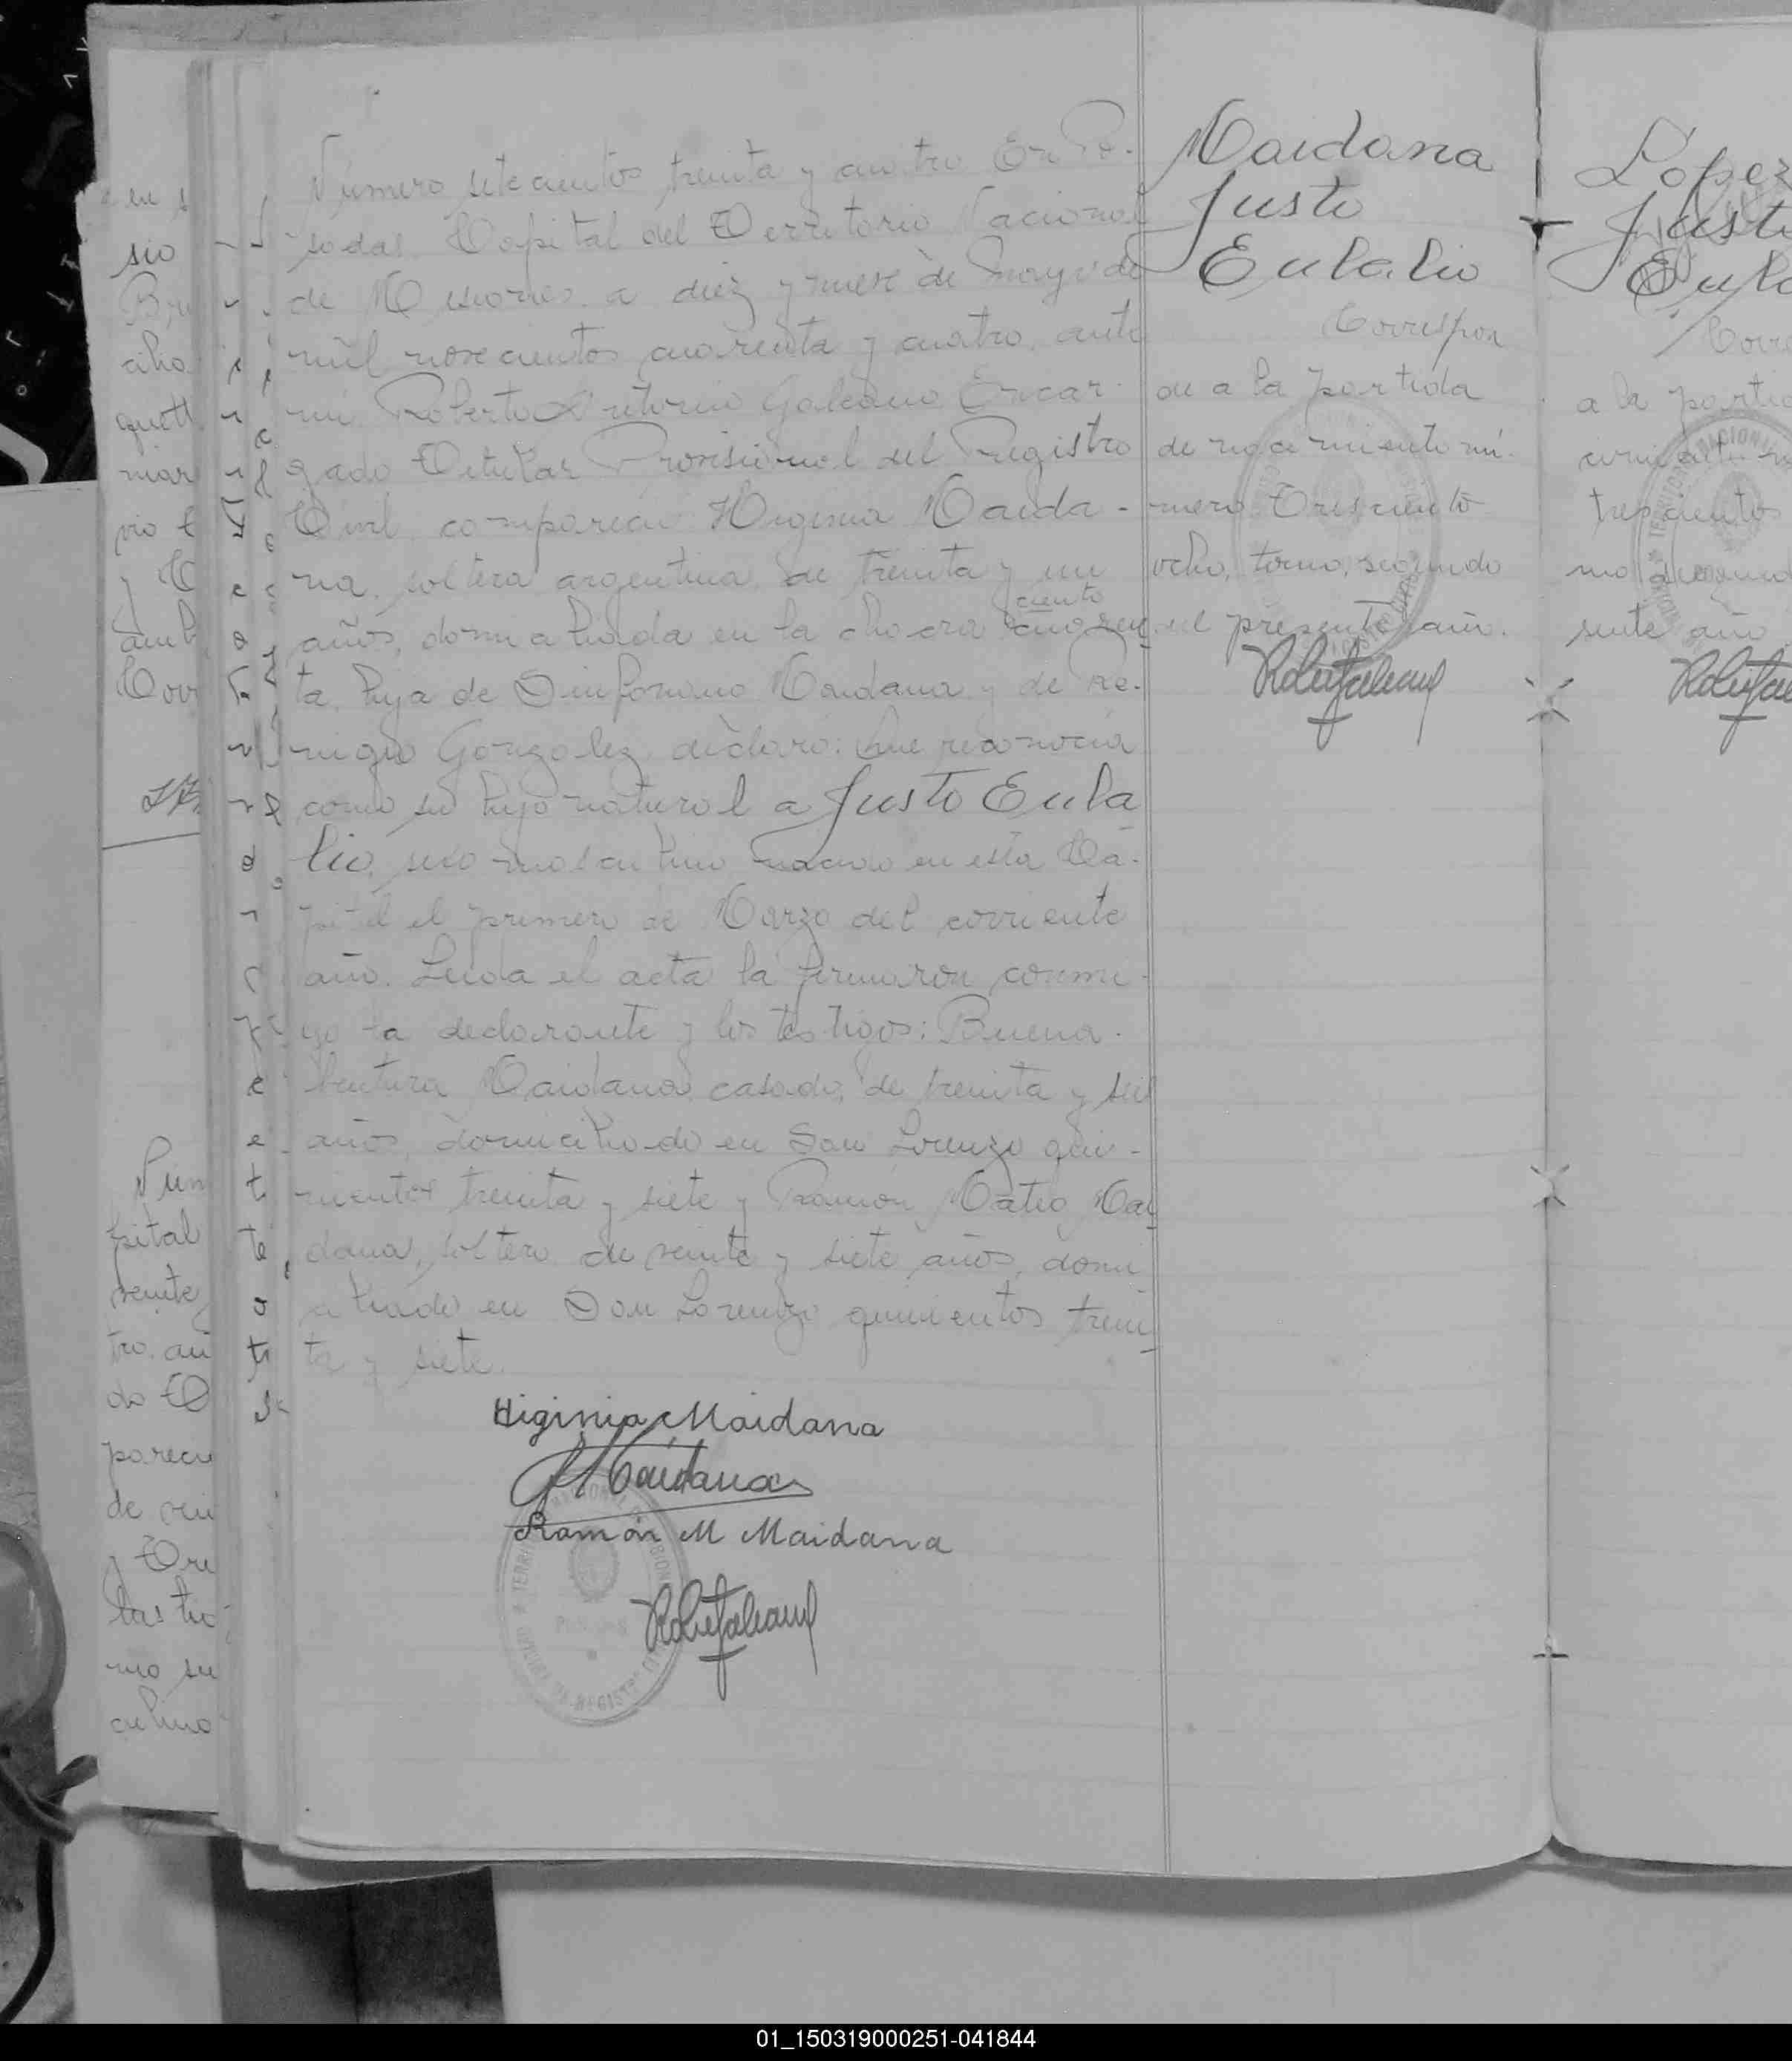 Número setecientos treinta y cuatro. En Po-
sadas Capital del Territorio Nacional
de Misiones a diez y nueve de Mayo de
mil novecientos cuarenta y cuatro, ante
mi Roberto Antonio Galeano, Encar-
gado Titular Provisional del Registro
Civil, compareció Higinia Maida-
na, soltera argentina, de treinta y un
años, domiciliada en la chacra ciento cuaren
ta, hija de Sinforiano Maidana y de Re-
migia Gonzalez, declaró: Que reconocia
como su hijo natural a Justo Eula
lio, sexo masculino nacido en esta Ca-
pital el primero de Marzo del corriente
año. Leida el acta la firmaron conmi-
go la declarante y los testigos: Buena-
ventura Maidana, casado, de treinta y seis
años, domiciliado en San Lorenzo qui-
nientos treinta y siete y Ramón Mateo Mai
dana, soltero de veinte y siete años, domi
ciliado en San Lorenzo quinientos trein
ta y siete.
Higinia Maidana
Maidana
Ramón M Maidana
Maidana
Justo
Eulalio
Correspon
de a la partida
de nacimiento nú-
mero Trescientos
ocho, tomo, segundo
del presente año.
Lopez
Justo
Eula
Corre
a la partid
trescientos
sente año
sio
Núm
pital
veinte
tro. an
do
parecio
mo su
culino
01_150319000251-041844